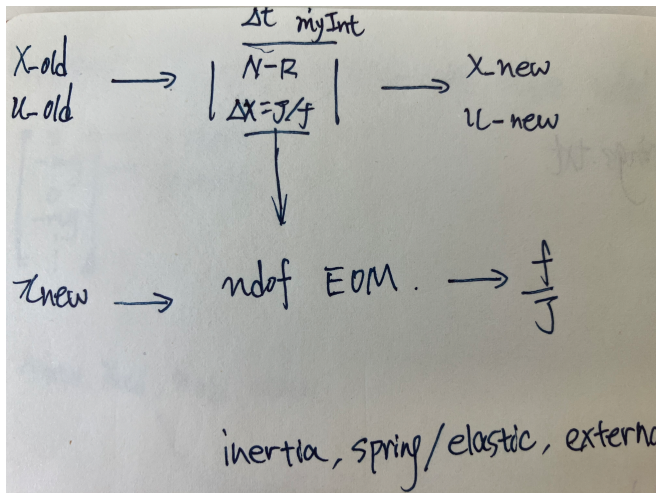 Δt myInt
x-old
u-old
N-R
ΔX=J/f
x-new
u-new
xnew
ndof EOM.
f
J
inertia, spring/elastic, externa